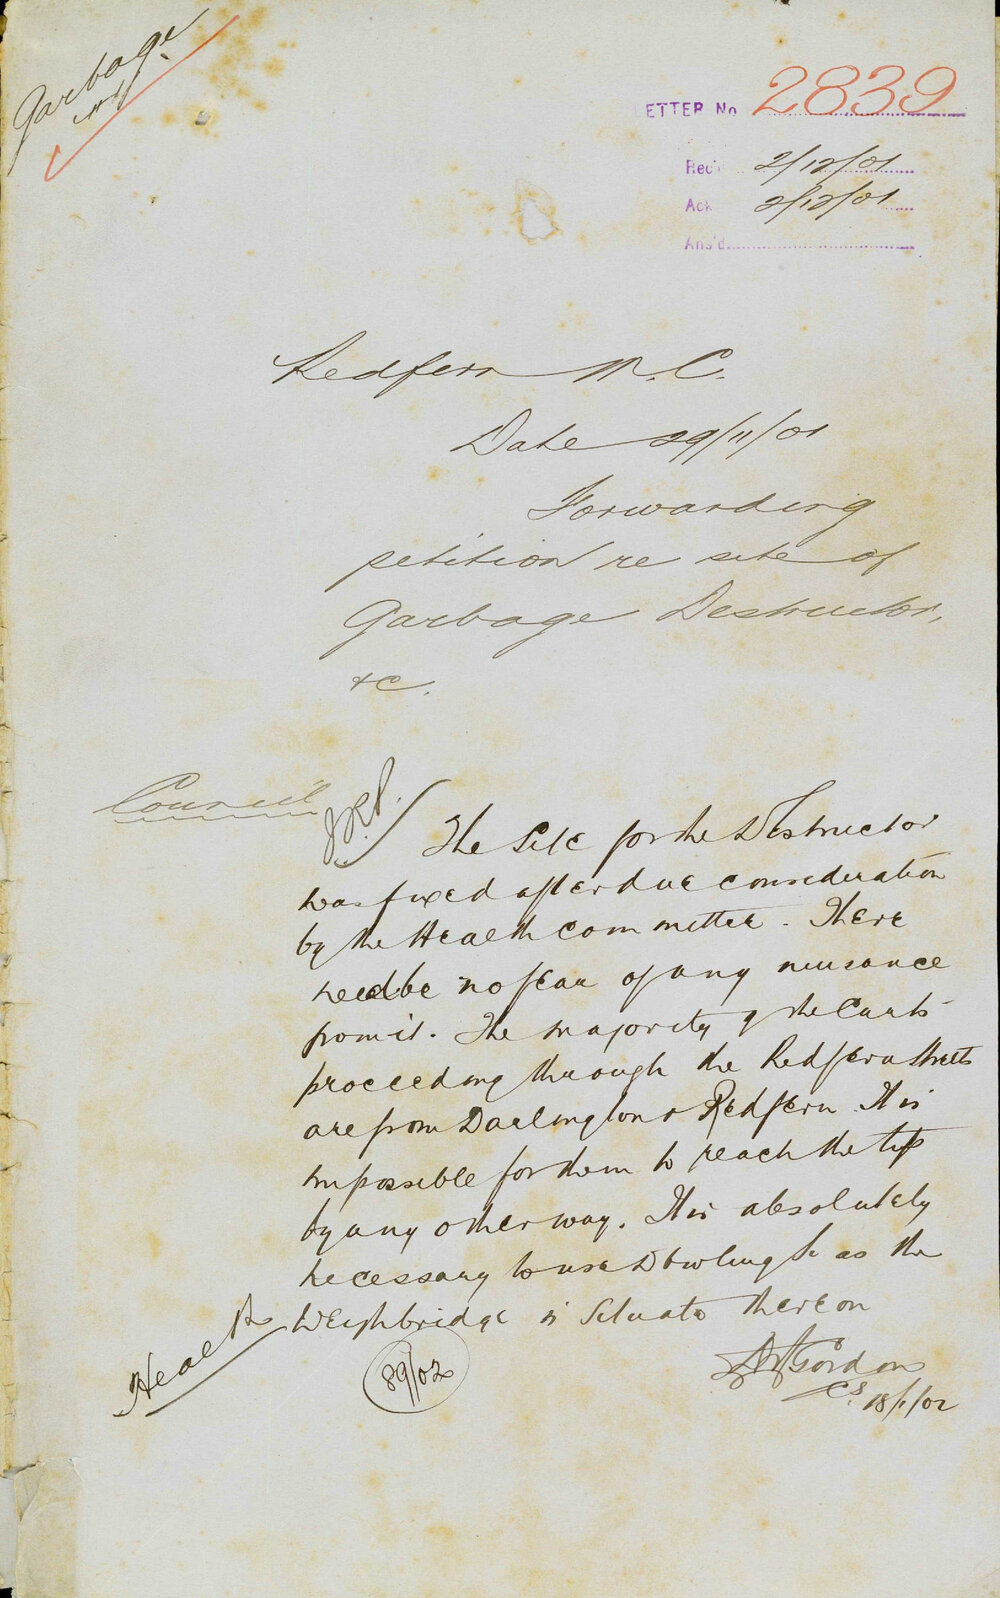 Garbage
ETTER No 2839
Rec 2/12/01
Ack 2/12/01
Ans'd
Redfern M.C.
Date 29/11/01
Forwarding
petition re site of
Garbage Destructor,
&c.
Council
The Site for the Destructor
was fixed after due consideration
by the Health Committee. There
need be no fear of any nuisance
from it. The majority of the Carts
proceeding through the Redfern streets
are from Darlington & Redfern. It is
impossible for them to reach the tip
by any other way. It is absolutely
necessary to use Dowling St as the
Weighbridge is Situate thereon
Gordon
CS. 18/1/02
Health
89/02